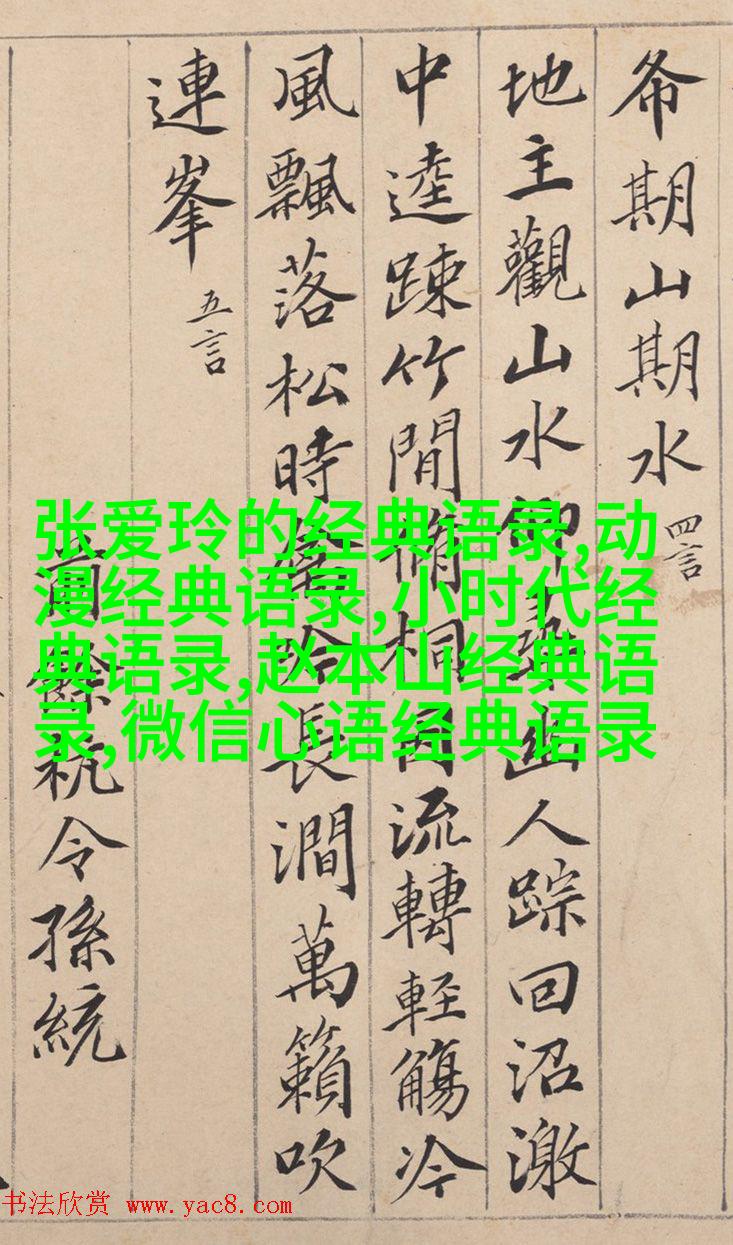 希期山期水 四言
地主觀山水仰尋幽人踪回沼激
中逵踈竹間脩桐因流轉輕觴冷
風飄落松時禽吟長澗萬籟吹
連峯 五言
前餘杭令孫統
张爱玲的经典语录,动
漫经典语录,小时代经
典语录,赵本山经典语
录,微信心语经典语录
书法欣赏 www.yac8.com